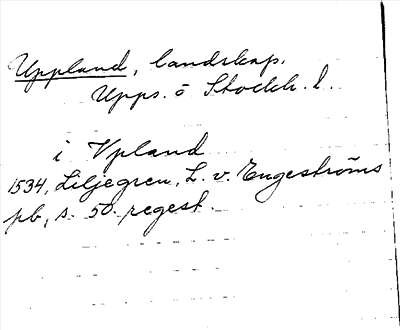 Uppland, landskap.
Upps. o Stockh. l.
i Vpland
1534, Liljegren, L. v. Engeströms
pb, s. 50. regest.